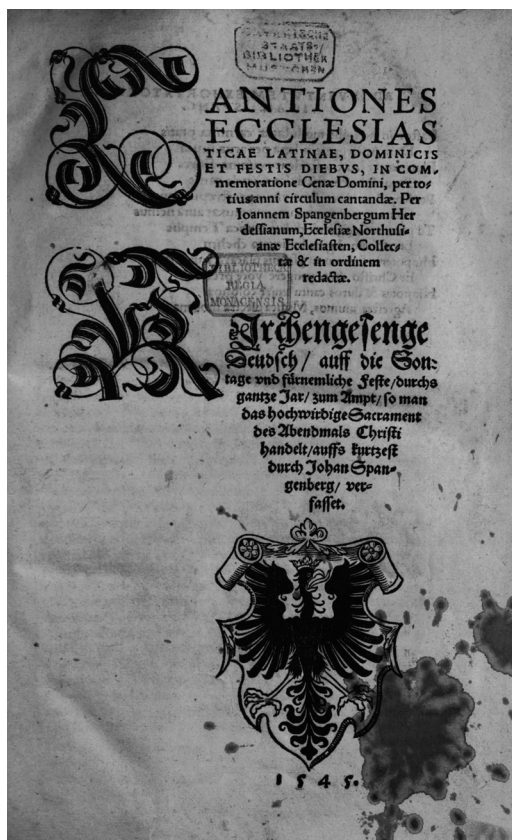 BAYERISCHE
STAATS-
BIBLIOTHEK
MÜNCHEN
CANTIONES
ECCLESIAS
TICAE LATINAE, DOMINICIS
ET FESTIS DIEBVS, IN COM-
memoratione Cenæ Domini, per to-
tius anni circulum cantandæ. Per
Ioannem Spangenbergum Her
dessianum, Ecclesiæ Northusi-
anæ Ecclesiasten, Collec-
tæ & in ordinem
redactæ.
BIBLIOTHECA
REGIA
MONACENSIS
KIrchengesenge
Deudsch / auff die Son-
tage vnd fürnemliche Feste / durchs
gantze Jar / zum Ampt / so man
das hochwirdige Sacrament
des Abendmals Christi
handelt / auffs kurtzest
durch Johan Span-
genberg / ver-
fasset.
1545.